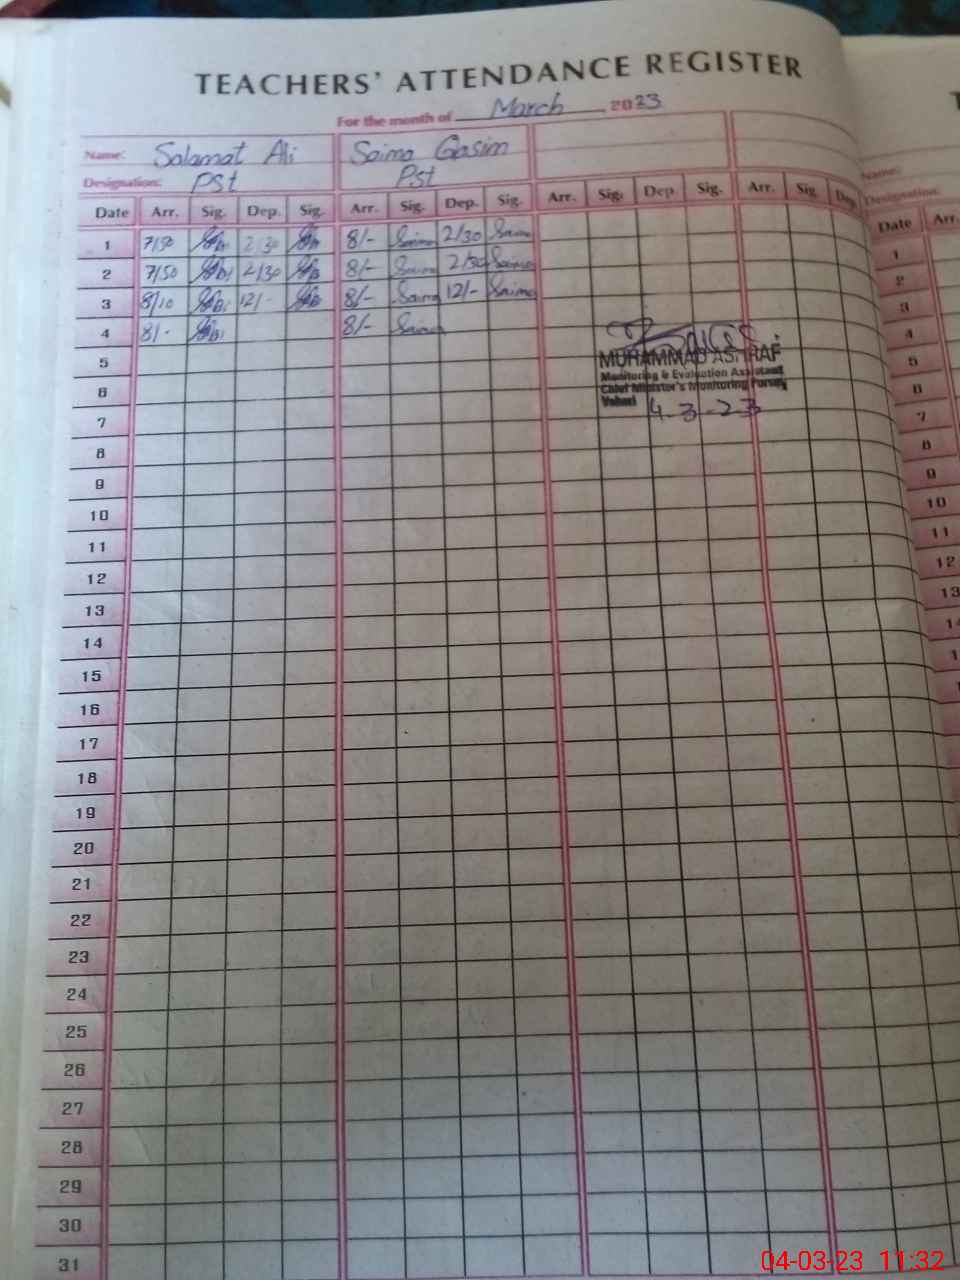 TEACHERS' ATTENDANCE REGISTER
For the month of March 2023
Name: Salamat Ali Saima Qasim
Designation: PSt PSt
Date Arr. Sig. Dep. Sig. Arr. Sig. Dep. Sig. Arr. Sig. Dep. Sig. Arr. Sig. Dep.
1 7/50 2/30 8/- Saima 2/30 Saima
2 7/50 2/30 8/- Saima 2/30 Saima
3 8/10 12/- 8/- Saima 12/- Saima
4 8/- 8/- Saima
5
MUHAMMAD ASHRAF
Monitoring & Evaluation Assistant
6
Chief Minister's Monitoring Force
Vehari 4-3-23
7
8
9
10
11
12
13
14
15
16
17
18
19
20
21
22
23
24
25
26
27
28
29
30
31
T
Name:
Designation:
Date Arr.
1
2
3
4
5
6
7
8
9
10
11
12
13
04-03-23 11:32